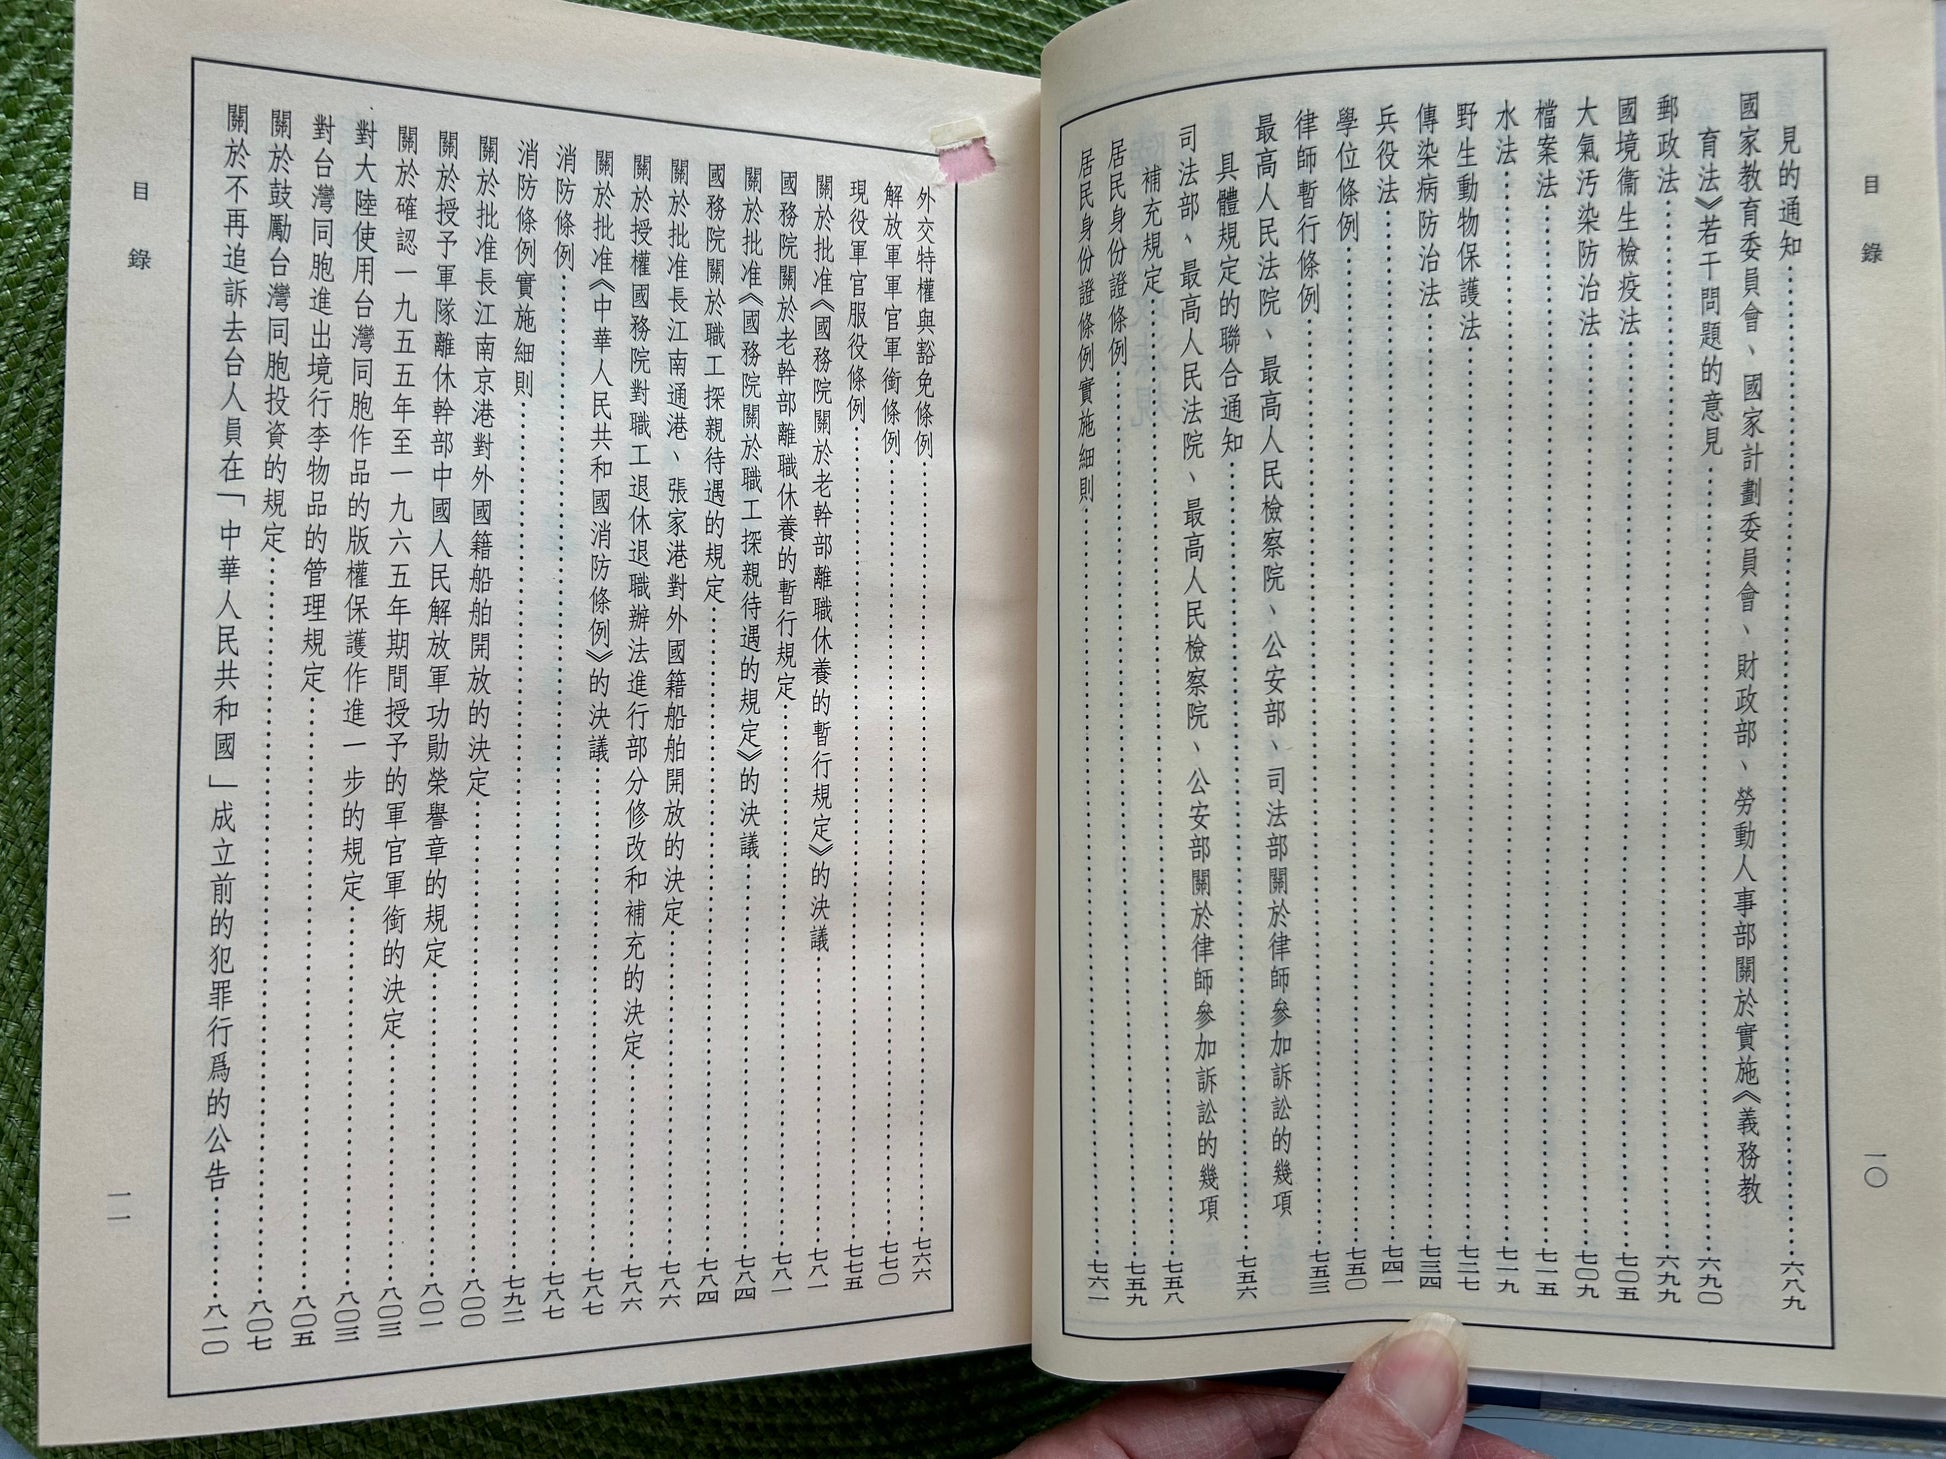 目錄
一〇
見的通知……六八九
國家教育委員會、國家計劃委員會、財政部、勞動人事部關於實施《義務教
育法》若干問題的意見……六九〇
郵政法……六九九
國境衛生檢疫法……七〇五
大氣污染防治法……七〇九
檔案法……七一五
水法……七一九
野生動物保護法……七二七
傳染病防治法……七三四
兵役法……七四一
學位條例……七五〇
律師暫行條例……七五三
最高人民法院、最高人民檢察院、公安部、司法部關於律師參加訴訟的幾項
具體規定的聯合通知……七五六
司法部、最高人民法院、最高人民檢察院、公安部關於律師參加訴訟的幾項
補充規定……七五八
居民身份證條例……七五九
居民身份證條例實施細則……七六一
外交特權與豁免條例……七六六
解放軍軍官軍銜條例……七七〇
現役軍官服役條例……七七五
關於批准《國務院關於老幹部離職休養的暫行規定》的決議……七八一
國務院關於老幹部離職休養的暫行規定……七八一
關於批准《國務院關於職工探親待遇的規定》的決議……七八四
國務院關於職工探親待遇的規定……七八四
關於批准長江南通港、張家港對外國籍船舶開放的決定……七八六
關於授權國務院對職工退休退職辦法進行部分修改和補充的決定……七八六
關於批准《中華人民共和國消防條例》的決議……七八七
消防條例……七八七
消防條例實施細則……七九二
關於批准長江南京港對外國籍船舶開放的決定……八〇〇
關於授予軍隊離休幹部中國人民解放軍功勛榮譽章的規定……八〇一
關於確認一九五五年至一九六五年期間授予的軍官軍銜的決定……八〇三
對大陸使用台灣同胞作品的版權保護作進一步的規定……八〇三
對台灣同胞進出境行李物品的管理規定……八〇五
關於鼓勵台灣同胞投資的規定……八〇七
關於不再追訴去台人員在「中華人民共和國」成立前的犯罪行爲的公告……八一〇
目錄
一一